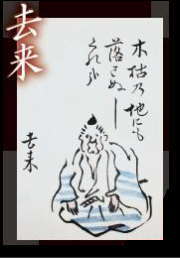 去来
木枯乃地にも
落さぬし
くれ哉
去来